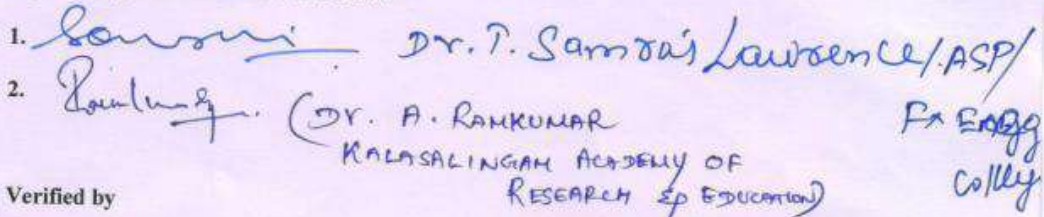 1. Dr. T. Samraj Lawrence/.ASP/
2. (Dr. A. RAMKUMAR
KALASALINGAM ACADEMY OF
RESEARCH & EDUCATION)
Verified by